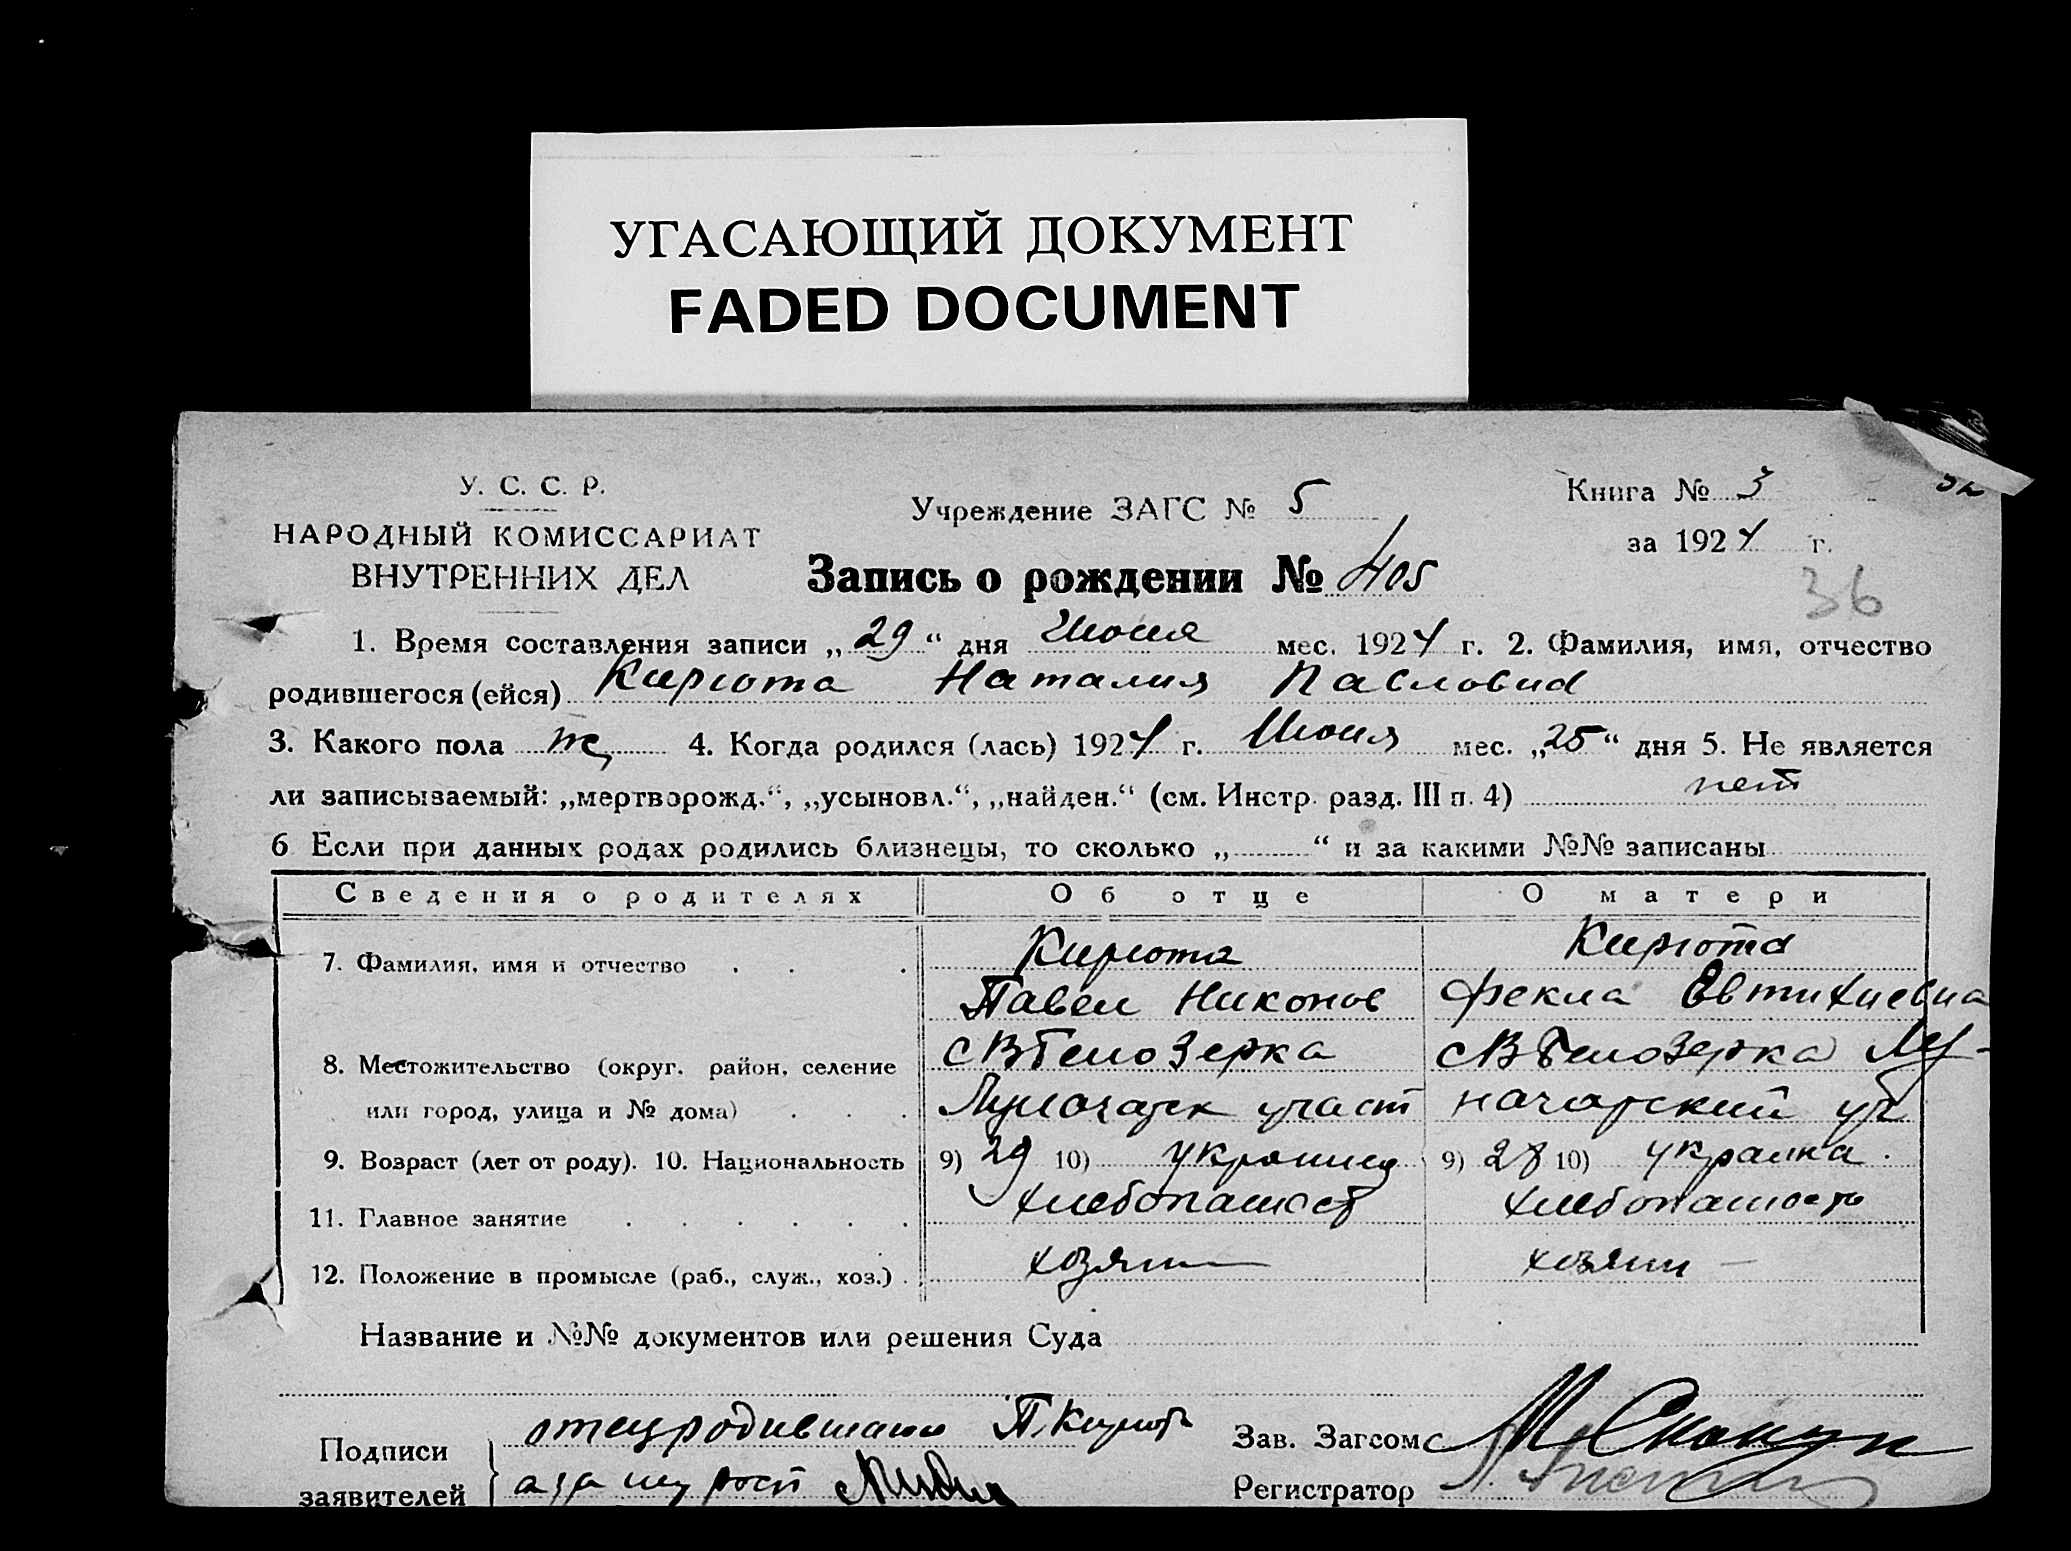 УГАСАЮЩИЙ ДОКУМЕНТ
FADED DOCUMENT
У. С. С. Р.
НАРОДНЫЙ КОМИССАРИАТ
ВНУТРЕННИХ ДЕЛ
Учреждение ЗАГС № 5
Запись о рождении № 405
Книга № 3
за 1924 г.
36
1. Время составления записи „29“ дня Июня мес. 1924 г. 2. Фамилия, имя, отчество
родившегося (ейся) Кирюта Наталия Павловна
3. Какого пола ж 4. Когда родился (лась) 1924 г. Июня мес. „25“ дня 5. Не является
ли записываемый: „мертворожд.“, „усыновл.“, „найден.“ (см. Инстр. разд. III п. 4) нет
6 Если при данных родах родились близнецы, то сколько „ “ и за какими №№ записаны
Сведения о родителях Об отце О матери
7. Фамилия, имя и отчество Кирюта Кирюта
Павел Никонов Фекла Евтихиевна
8. Местожительство (округ. район, селение с ВБелозерка с ВБелозерка Лу-
или город, улица и № дома) участ начарский уч
9. Возраст (лет от роду). 10. Национальность 9) 29 10) украинец 9) 28 10) украинка.
11. Главное занятие хлебопашест хлебопашость
12. Положение в промысле (раб., служ., хоз.) хозяин хозяин
Название и №№ документов или решения Суда
Подписи
заявителей
П. Кирюта
Зав. Загсом
Регистратор